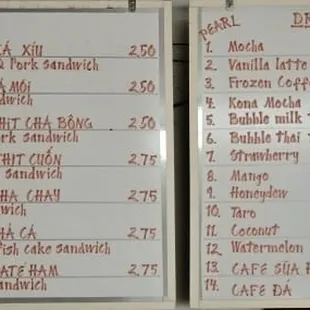 XÍU 2,50
Pork sandwich
MÓI 2,50
CHẢ BÔNG 2,50
sandwich
CUỐN 2,75
sandwich
CHAY 2,75
CÁ 2,75
fish cake sandwich
HAM 2,75
sandwich
PEARL
1. Mocha
2. Vanilla latte
3. Frozen
4. Kona Mocha
5. Bubble milk
6. Bubble thai
7. Strawberry
8. Mango
9. Honeydew
10. Taro
11. Coconut
12 Watermelon
13. CAFE SỮA
14. CAFE ĐÁ